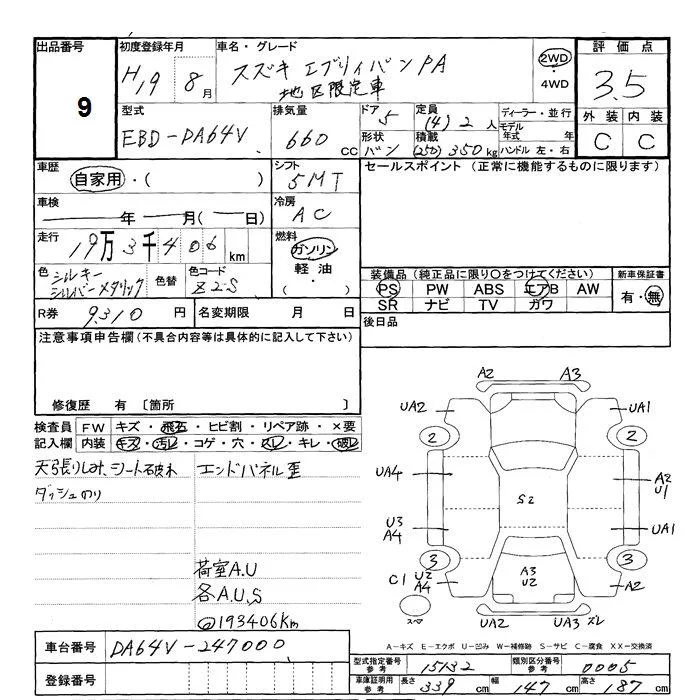 出品番号
9
初度登録年月
H19 8月
車名・グレード
スズキ エブリィバン PA
地区限定車
2WD
・
4WD
評価点
3.5
外装 内装
C C
型式
EBD-DA64V
排気量
660 cc
ドア
5
形状
バン
定員
(4) 2 人
積載
(250) 350 kg
ディーラー・並行
モデル
年式 年
ハンドル 左・右
車歴
自家用・( )
シフト
5MT
セールスポイント (正常に機能するものに限ります)
車検
年 月( 日)
冷房
AC
走行
19万3千406 km
燃料
ガソリン
軽油・
( )
色
シルキー
シルバーメタリック
色替
色コード
Z2S
装備品(純正品に限り○をつけてください)
PS PW ABS エアB AW
SR ナビ TV カワ
新車保証書
有・無
R券 9,310 円
名変期限 月 日
後日品
注意事項申告欄(不具合内容等は具体的に記入して下さい)
修復歴 有 〔箇所 〕
検査員 FW キズ・飛石・ヒビ割・リペア跡・×要
記入欄 内装 キズ・汚レ・コゲ・穴・スレ・キレ・破レ
天張りしみ、シート破れ
ダッシュのり
エンドパネル歪
荷室A.U
各A.U.S
@193406Km
A2 A3
UA2 UA1
2 2
UA4 A2
U1
S2
U3
A4
UA1
3 3
C1 U2
A4
A3
U2
A2
スペア
UA2 UA3 ズレ
A-キズ E-エクボ U-凹み W-補修跡 S-サビ C-腐食 XX-交換済
車台番号 DA64V-247000
登録番号
型式指定番号
参考
15132
類別区分番号
参考
0005
車庫証明用
参考
長さ 339 cm 幅 147 cm 高さ 187 cm